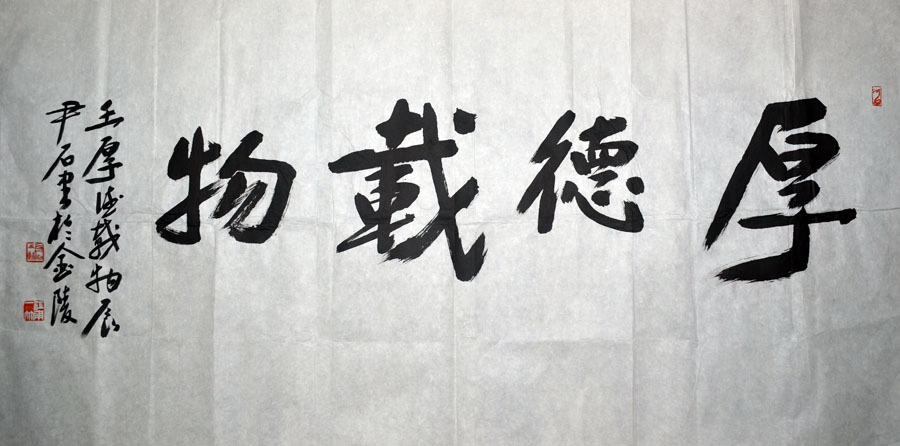 厚德載物
厚德载物辰
尹石书於金陵